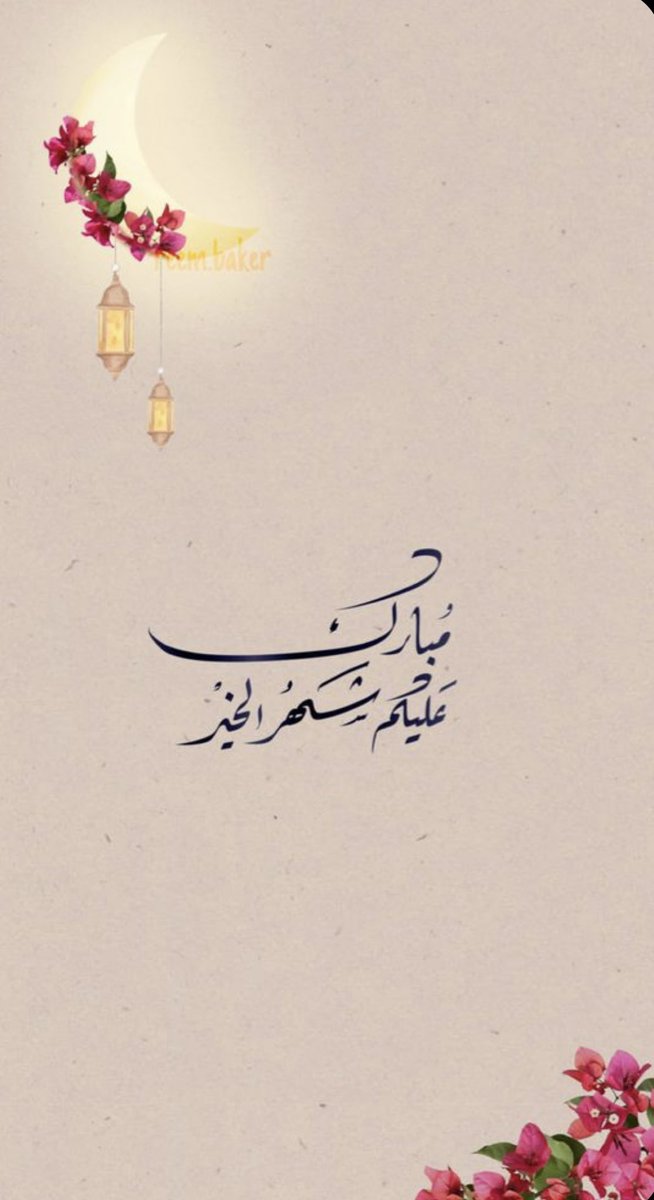 reem.baker
مُبارك
عَليكم شَهْرُ الخيْر